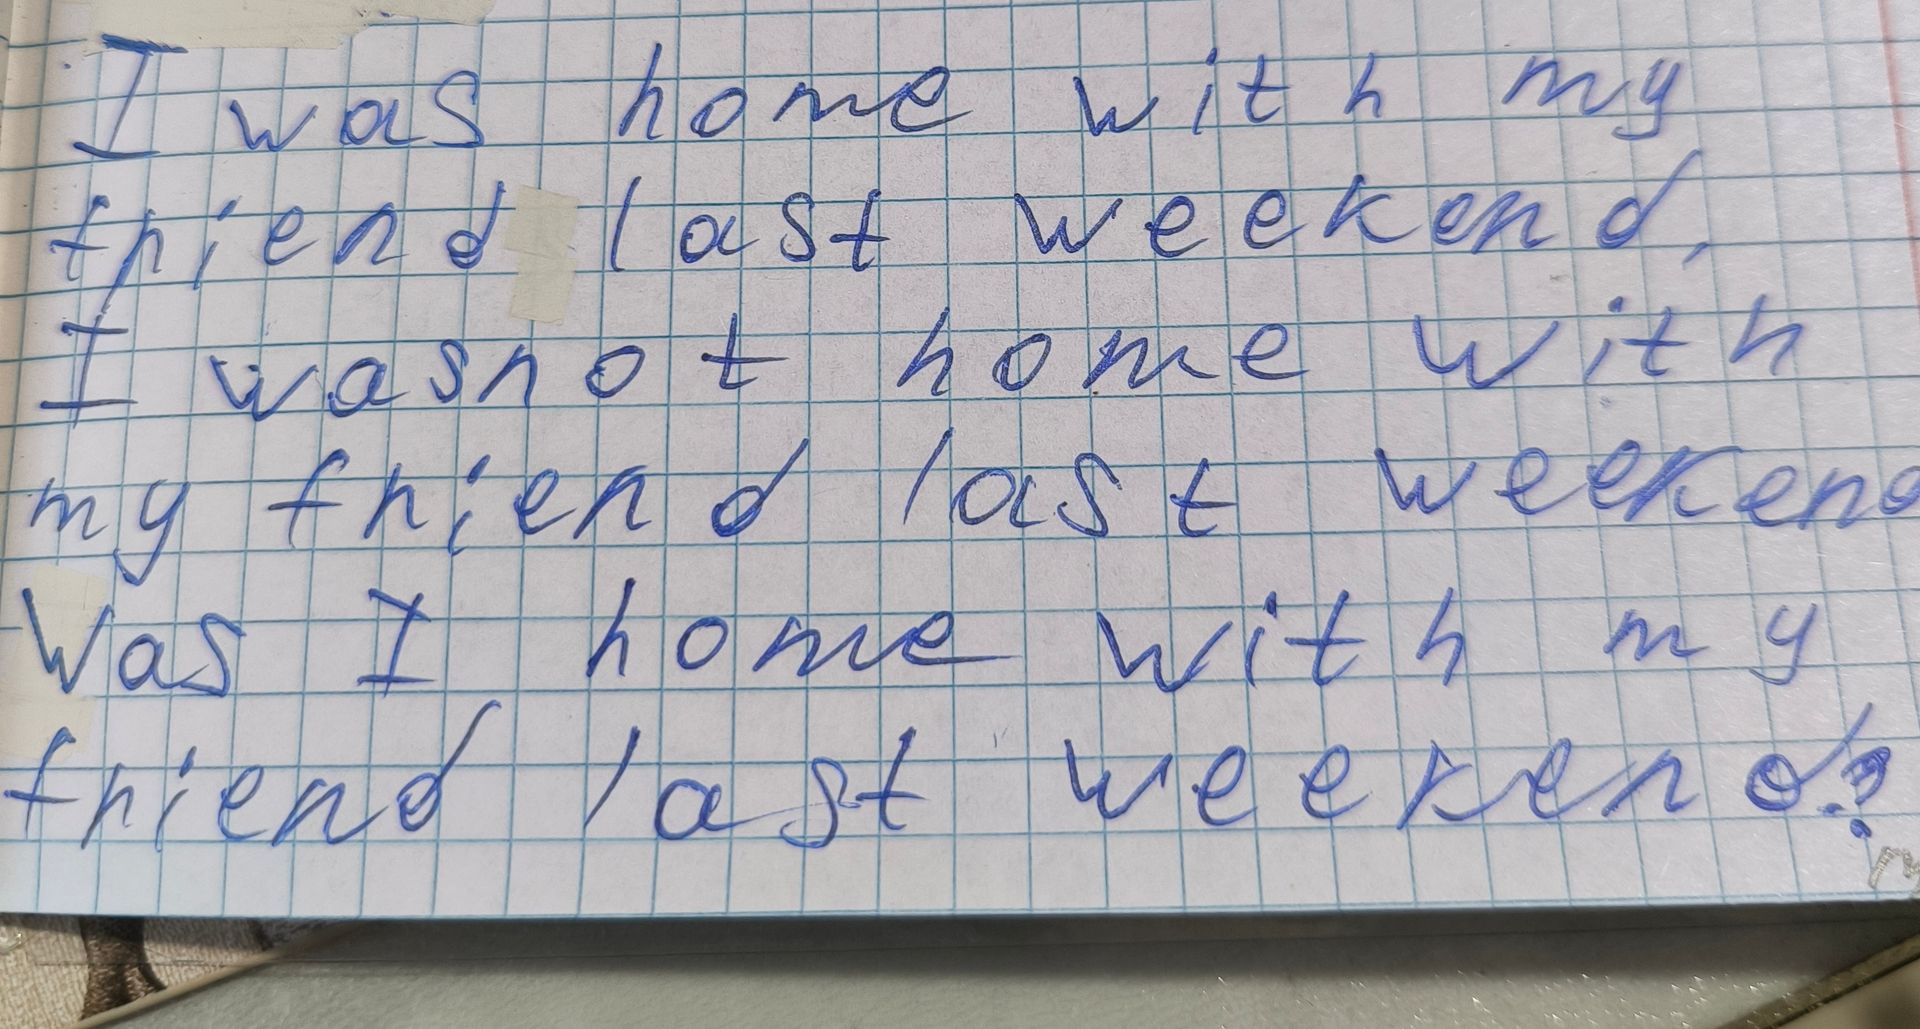 I was home with my
friend last weekend,
I wasnot home with
my friend last weekend
Was I home with my
friend last weekend?